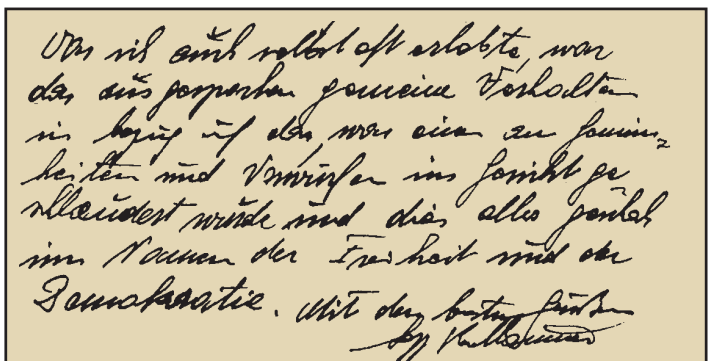 Was ich auch selbst oft erlebte, war
das ausgesprochen gemeine Verhalten
in bezug auf das, was einem an Gemein-
heiten und Vorwürfen ins Gesicht ge
schleudert wurde und dies alles geschah
im Namen der Freiheit und der
Demokratie. Mit den besten Grüßen